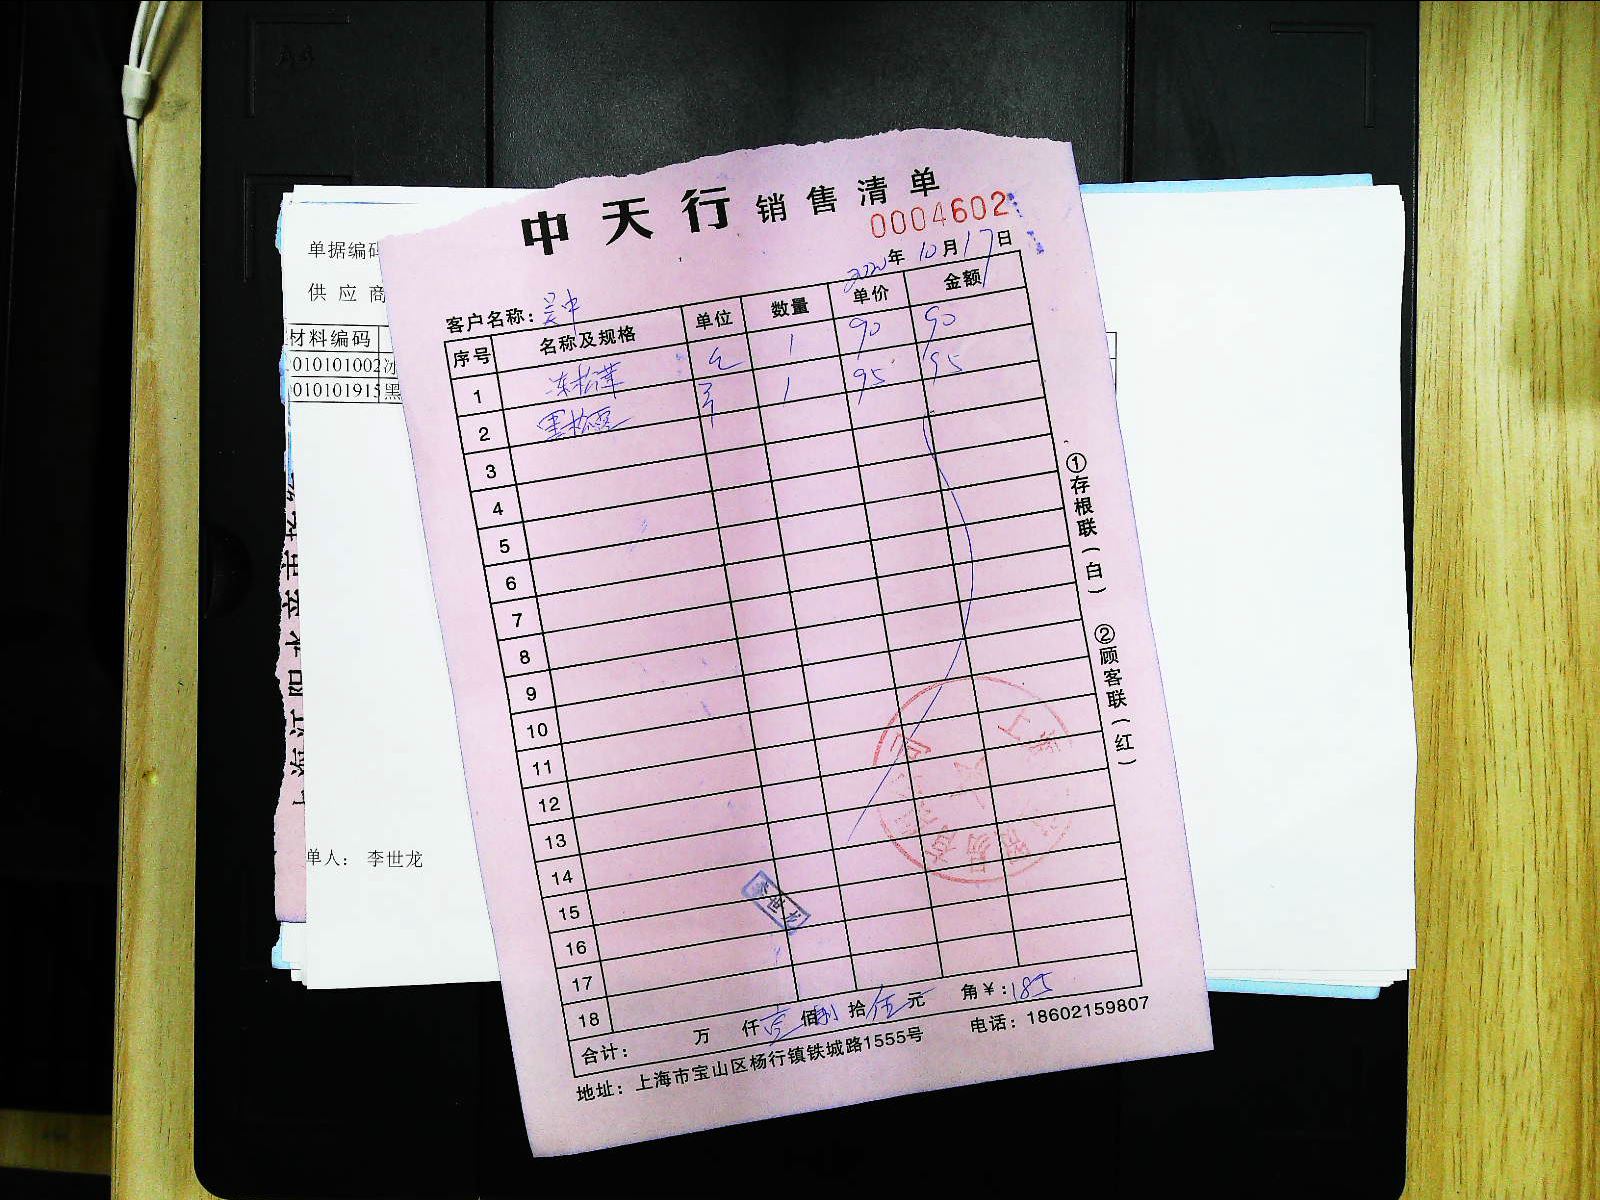 中天行销售清单
0004602
2020年10月17日
客户名称：吴中
序号 名称及规格 单位 数量 单价 金额
1 冻松茸 1 90 90
2 黑松露 1 95 95
3
4
5
6
7
8
9
10
11
12
13
14
15
16
17
18
合计： 万 仟壹佰捌拾伍元 角￥:185
地址：上海市宝山区杨行镇铁城路1555号 电话：18602159807
①存根联（白） ②顾客联（红）
单据编码
供应商
材料编码
010101002冰
010101915黑
单人： 李世龙